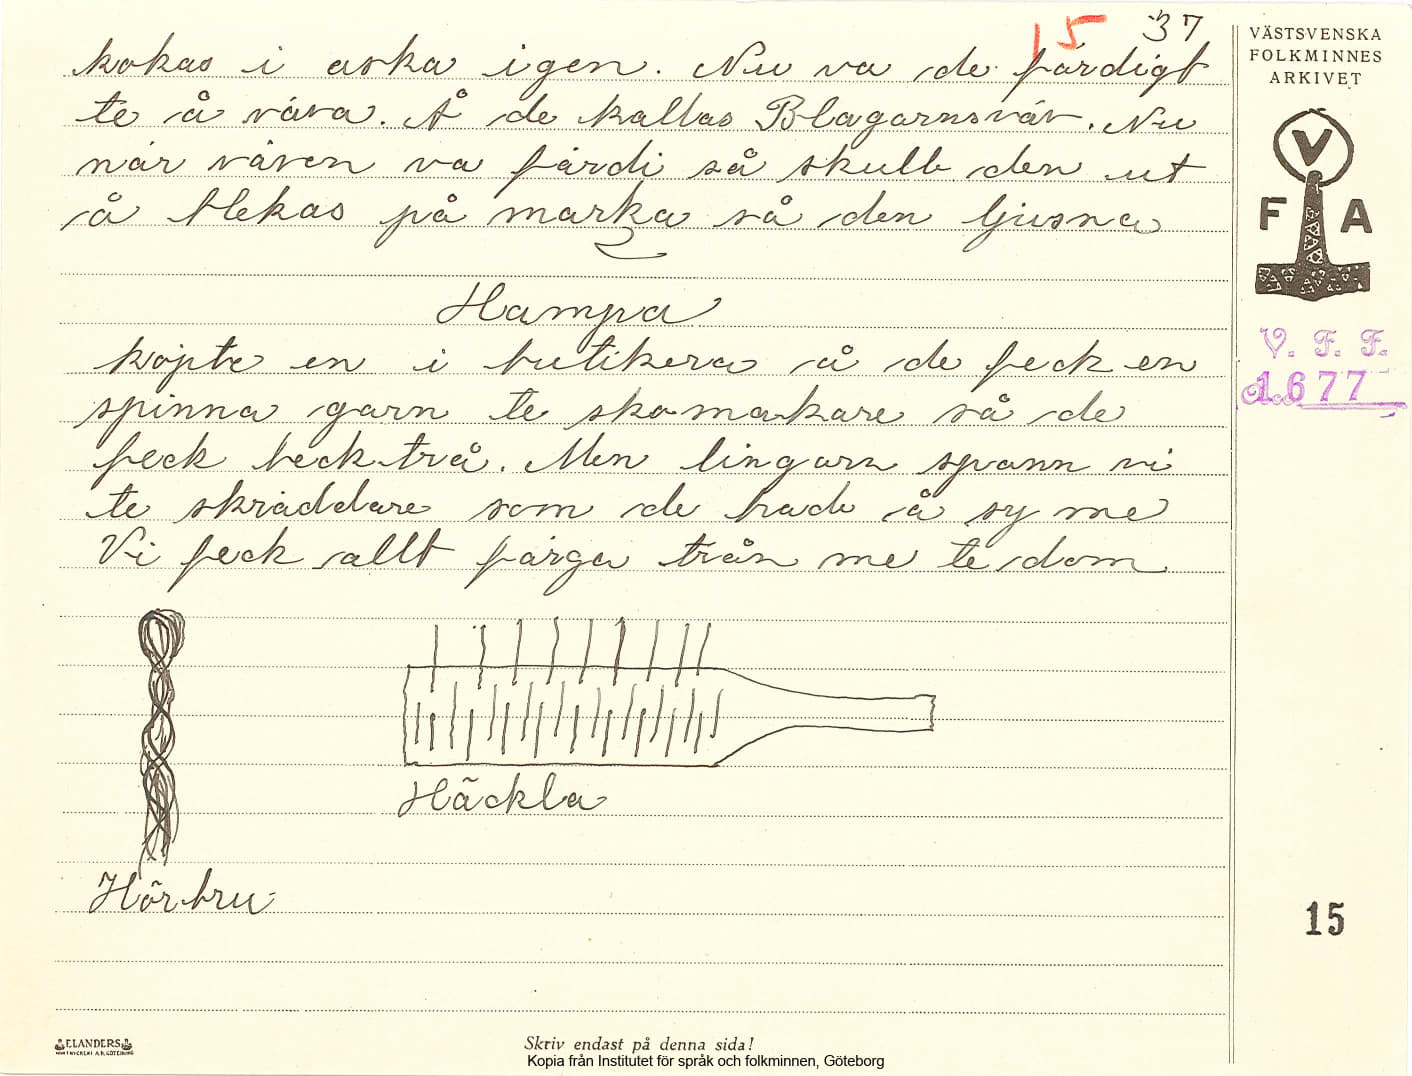 15 37
kokas i aska igen. Nu va de färdigt
te å väva. Å de kallas Blagarnsväv. Nu
när väven va färdi så skulle den ut
å blekas på marka så den ljusna
Hampa
köpte en i butikera å de feck en
spinna garn te skomakare så de
feck becktrå. Men lingarn spann vi
te skräddare som de hade å sy me
Vi feck allt färga trån me te dom
Häckla
Hörbru
VÄSTSVENSKA
FOLKMINNES
ARKIVET
V
F A
V. F. F.
1677
15
ELANDERS
Skriv endast på denna sida!
Kopia från Institutet för språk och folkminnen, Göteborg